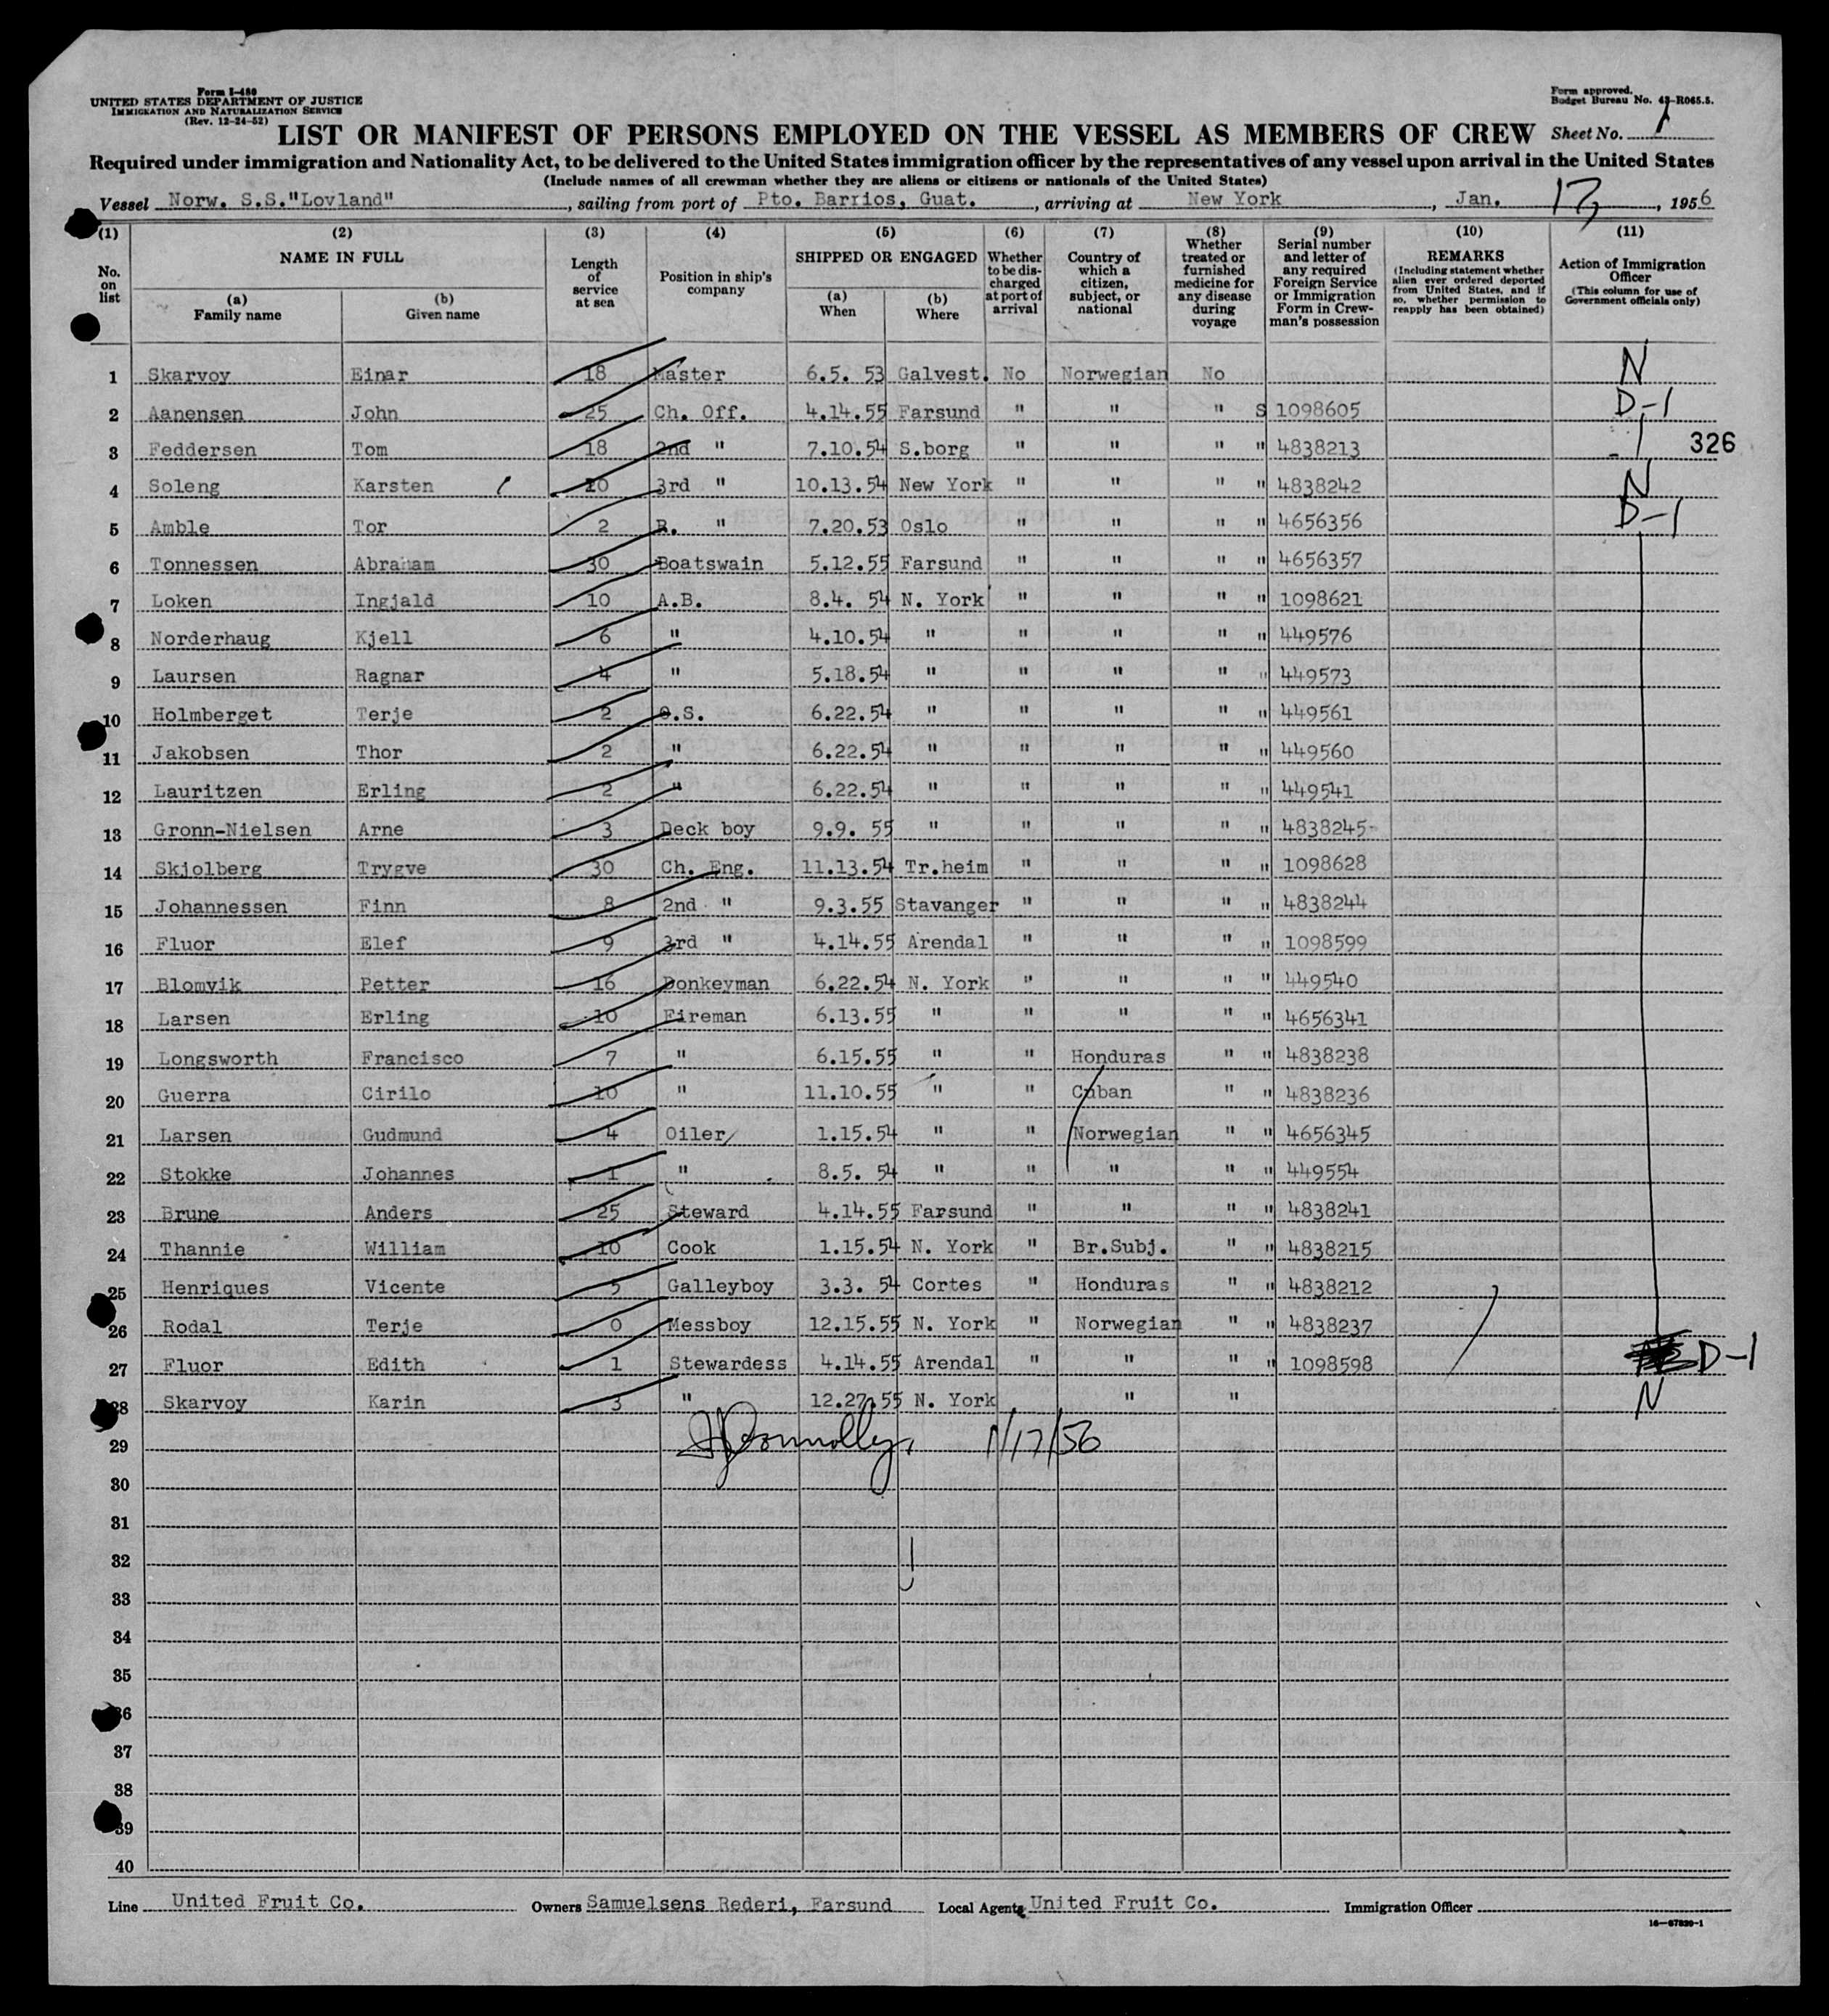 Form I-480
UNITED STATES DEPARTMENT OF JUSTICE
IMMIGRATION AND NATURALIZATION SERVICE
(Rev. 12-24-52)
Form approved.
Budget Bureau No. 43-R065.5.
LIST OR MANIFEST OF PERSONS EMPLOYED ON THE VESSEL AS MEMBERS OF CREW Sheet No. 1
Required under immigration and Nationality Act, to be delivered to the United States immigration officer by the representatives of any vessel upon arrival in the United States
(Include names of all crewman whether they are aliens or citizens or nationals of the United States)
Vessel Norw. S.S."Lovland", sailing from port of Pto. Barrios, Guat., arriving at New York, Jan. 17, 1956
(1) (2) (3) (4) (5) (6) (7) (8) (9) (10) (11)
No. on list
NAME IN FULL
(a) Family name
(b) Given name
Length of service at sea
Position in ship's company
SHIPPED OR ENGAGED
(a) When
(b) Where
Whether to be discharged at port of arrival
Country of which a citizen, subject, or national
Whether treated or furnished medicine for any disease during voyage
Serial number and letter of any required Foreign Service or Immigration Form in Crewman's possession
REMARKS
(Including statement whether alien ever ordered deported from United States, and if so, whether permission to reapply has been obtained)
Action of Immigration Officer
(This column for use of Government officials only)
1 Skarvoy Einar 18 Master 6.5. 53 Galvest. No Norwegian No N
2 Aanensen John 25 Ch. Off. 4.14.55 Farsund " " " S 1098605 D-1
3 Feddersen Tom 18 2nd " 7.10.54 S.borg " " " " 4838213 - 1 326
4 Soleng Karsten 10 3rd " 10.13.54 New York " " " " 4838242 N
5 Amble Tor 2 R. " 7.20.53 Oslo " " " " 4656356 D-1
6 Tonnessen Abraham 30 Boatswain 5.12.55 Farsund " " " " 4656357
7 Loken Ingjald 10 A.B. 8.4. 54 N. York " " " " 1098621
8 Norderhaug Kjell 6 " 4.10.54 " " " " " 449576
9 Laursen Ragnar 4 " 5.18.54 " " " " " 449573
10 Holmberget Terje 2 O.S. 6.22.54 " " " " " 449561
11 Jakobsen Thor 2 " 6.22.54 " " " " " 449560
12 Lauritzen Erling 2 " 6.22.54 " " " " " 449541
13 Gronn-Nielsen Arne 3 Deck boy 9.9. 55 " " " " " 4838245
14 Skjolberg Trygve 30 Ch. Eng. 11.13.54 Tr.heim " " " " 1098628
15 Johannessen Finn 8 2nd " 9.3.55 Stavanger " " " " 4838244
16 Fluor Elef 9 3rd " 4.14.55 Arendal " " " " 1098599
17 Blomvik Petter 16 Donkeyman 6.22.54 N. York " " " " 449540
18 Larsen Erling 10 Fireman 6.13.55 " " " " " 4656341
19 Longsworth Francisco 7 " 6.15.55 " " Honduras " " 4838238
20 Guerra Cirilo 10 " 11.10.55 " " Cuban " " 4838236
21 Larsen Gudmund 4 Oiler 1.15.54 " " Norwegian " " 4656345
22 Stokke Johannes 1 " 8.5. 54 " " " " " 449554
23 Brune Anders 25 Steward 4.14.55 Farsund " " " " 4838241
24 Thannie William 10 Cook 1.15.54 N. York " Br.Subj. " " 4838215
25 Henriques Vicente 5 Galleyboy 3.3. 54 Cortes " Honduras " " 4838212
26 Rodal Terje 0 Messboy 12.15.55 N. York " Norwegian " " 4838237
27 Fluor Edith 1 Stewardess 4.14.55 Arendal " " " " 1098598 D-1
28 Skarvoy Karin 3 " 12.27.55 N. York " " N
29 JJ Connolly, 1/17/56
30
31
32
33
34
35
36
37
38
39
40
Line United Fruit Co. Owners Samuelsens Rederi, Farsund Local Agents United Fruit Co. Immigration Officer
16-67820-1